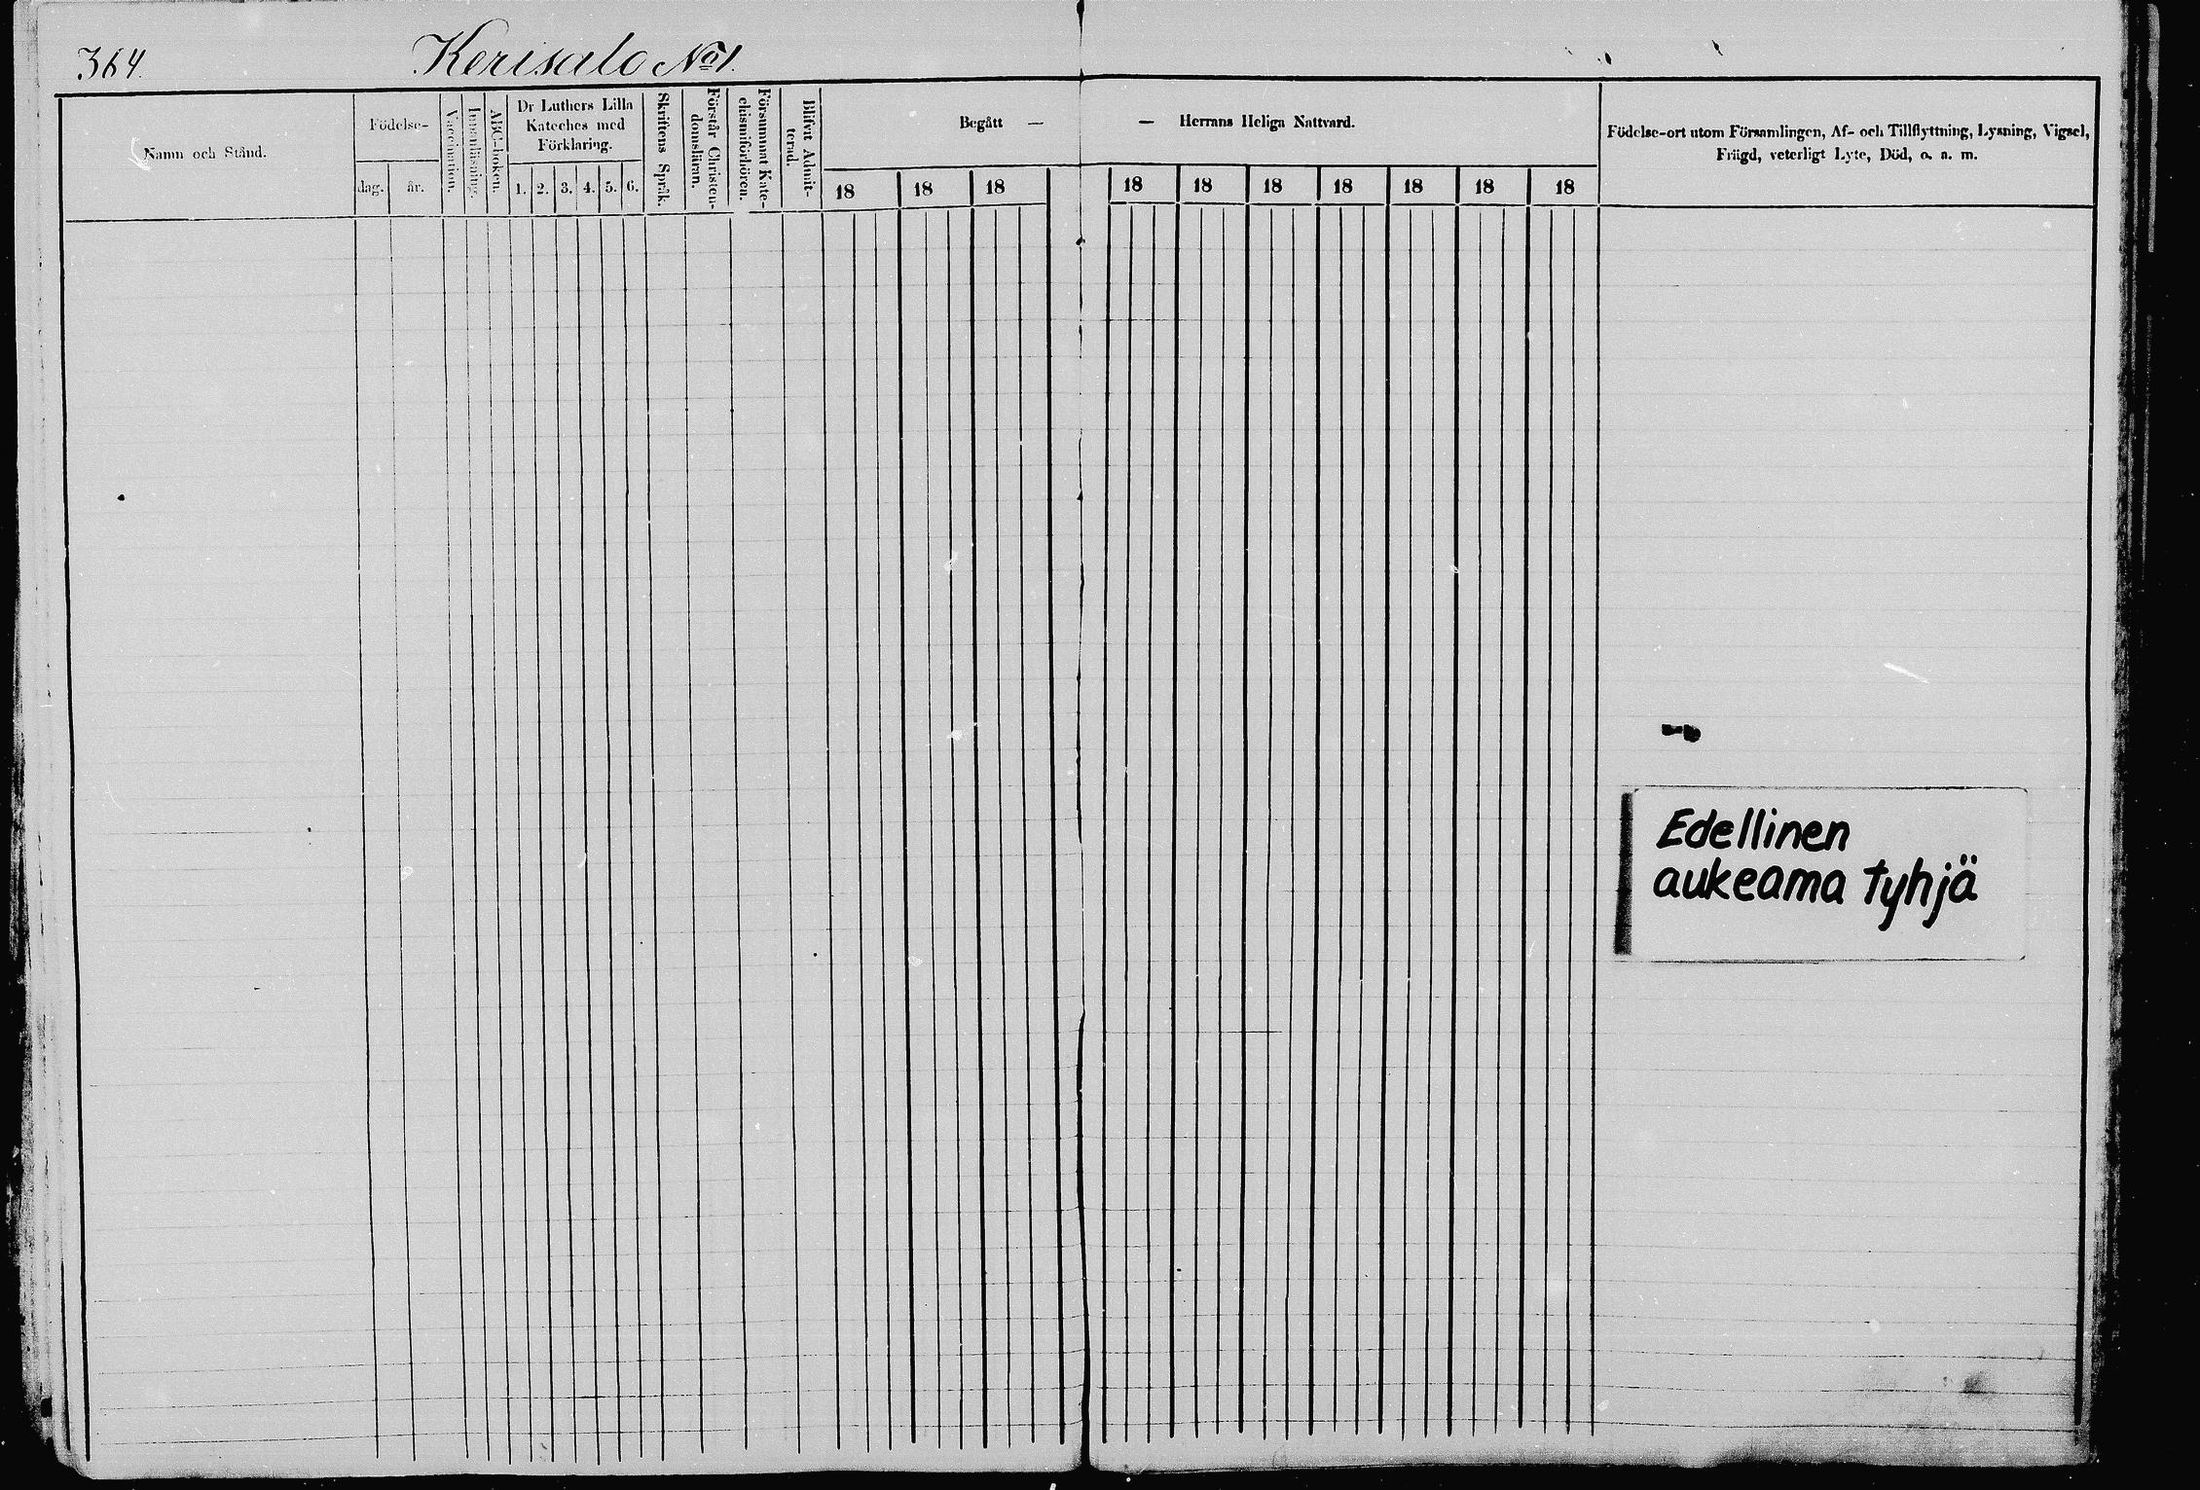 364.
Kerisalo No 1.
Namn och Stånd.
Födelse-
dag.
år.
Vaccination.
Innanläsning.
ABC-boken.
Dr Luthers Lilla
Kateches med
Förklaring.
1. 2. 3. 4. 5. 6.
Skriftens Språk.
Förstår Christen-
domsläran.
Försummat Kate-
chismiförhören.
Blifvit Admit-
terad.
Begått —
— Herrans Heliga Nattvard.
18 18 18 18 18 18 18 18 18 18
Födelse-ort utom Församlingen, Af- och Tillflyttning, Lysning, Vigsel,
Frägd, veterligt Lyte, Död, o. a. m.
Edellinen
aukeama tyhjä